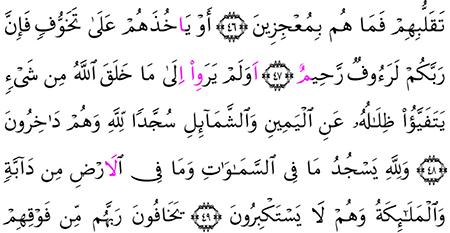 تَقَلُّبِهِمْ فَمَا هُم بِمُعْجِزِينَ ﴿٤٦﴾ أَوْ يَاخُذَهُمْ عَلَىٰ تَخَوُّفٍ فَإِنَّ
رَبَّكُمْ لَرَءُوفٌ رَّحِيمٌ ﴿٤٧﴾ اَوَلَمْ يَرَوِاْ اِلَىٰ مَا خَلَقَ اَللَّهُ مِن شَيْءٍ
يَتَفَيَّؤُاْ ظِلَـٰلُهُۥ عَنِ اِلْيَمِينِ وَالشَّمَآئِلِ سُجَّدًا لِّلهِ وَهُمْ دَاخِرُونَ
﴿٤٨﴾ وَلِلهِ يَسْجُدُ مَا فِى السَّمَـٰوَاتِ وَمَا فِى اَلَارْضِ مِن دَآبَّةٍ
وَالْمَلَـٰئِكَةُ وَهُمْ لَا يَسْتَكْبِرُونَ ﴿٤٩﴾ يَخَافُونَ رَبَّهُم مِّن فَوْقِهِمْ